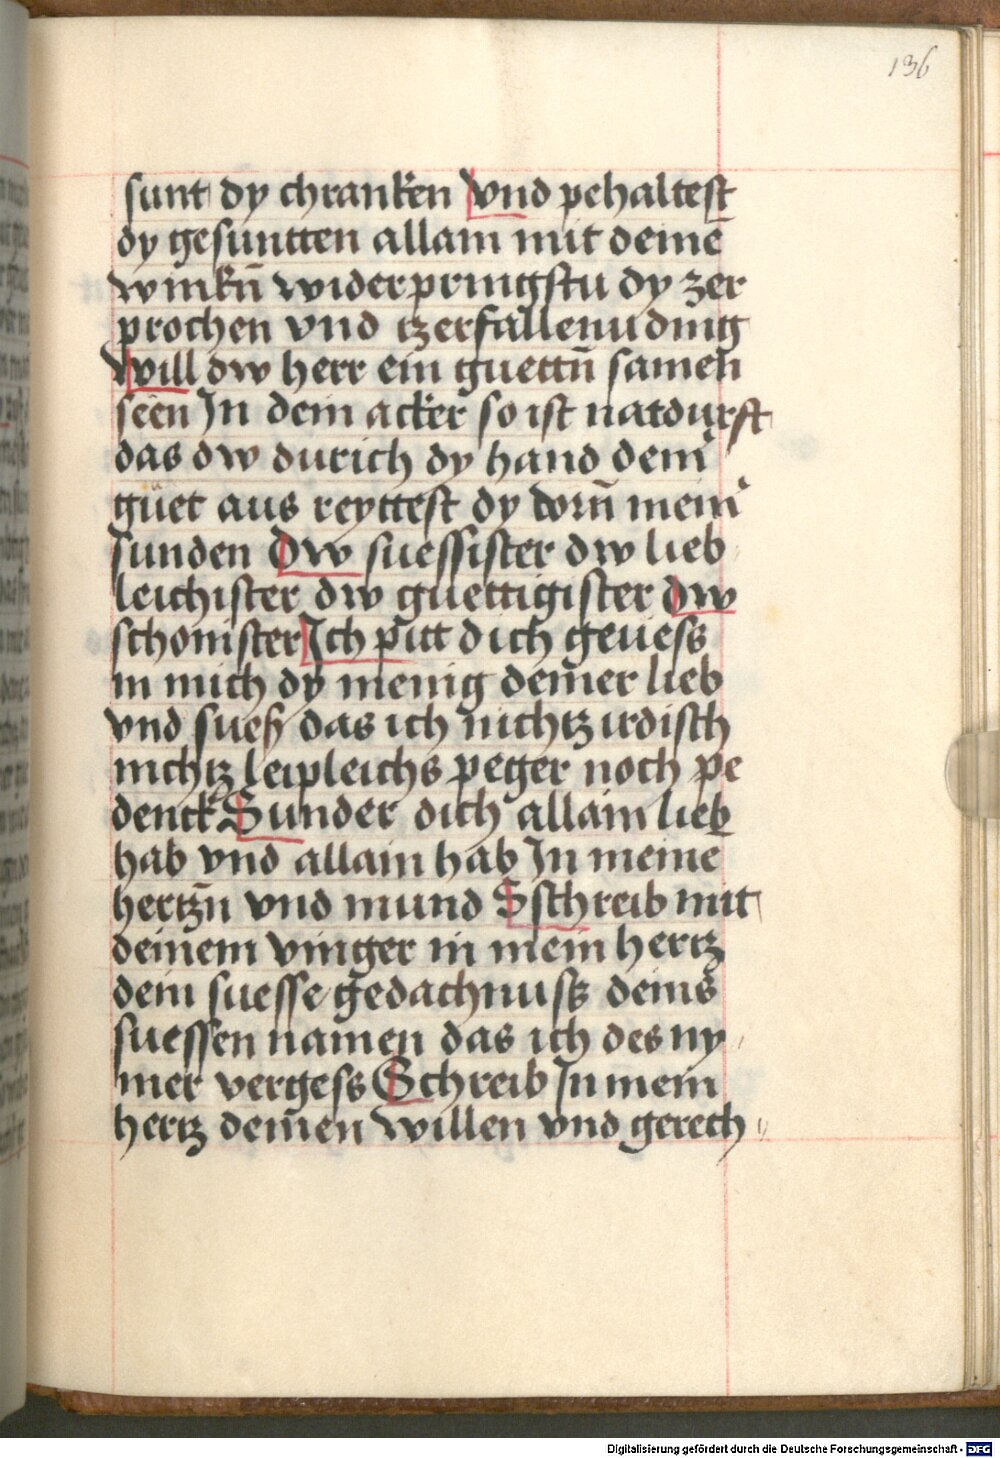 136
sunt dy chranken Vnd pehaltest
dy gesuntten allain mit deinē
winkn̄ widerpringstu dy zer
prochen vnd tzerfallenu ding
Will dw herr ein guettn̄ samen
seen In dein acker so ist natdurft
das dw durich dy hand deinʼ
guet aus reyttest dy dorn̄ meinʼ
sunden Dw suessister dw lieb
leichister dw guettigister Dw
schonister Ich pitt dich geuess
in mich dy menig deiner lieb
vnd sueſſ das ich nichtz irdisch
nichtz leipleichs peger noch pe
denck Sunder dich allain lieb
hab vnd allain hab In meinē
hertzn̄ vnd mund Sschreib mit
deinem vinger in mein hertz
dein suesse gedachnusß deins
suessen namen das ich des ny
mer vergess Schreib In mein
hertz deinen willen vnd gerech
Digitalisierung gefördert durch die Deutsche Forschungsgemeinschaft - DFG